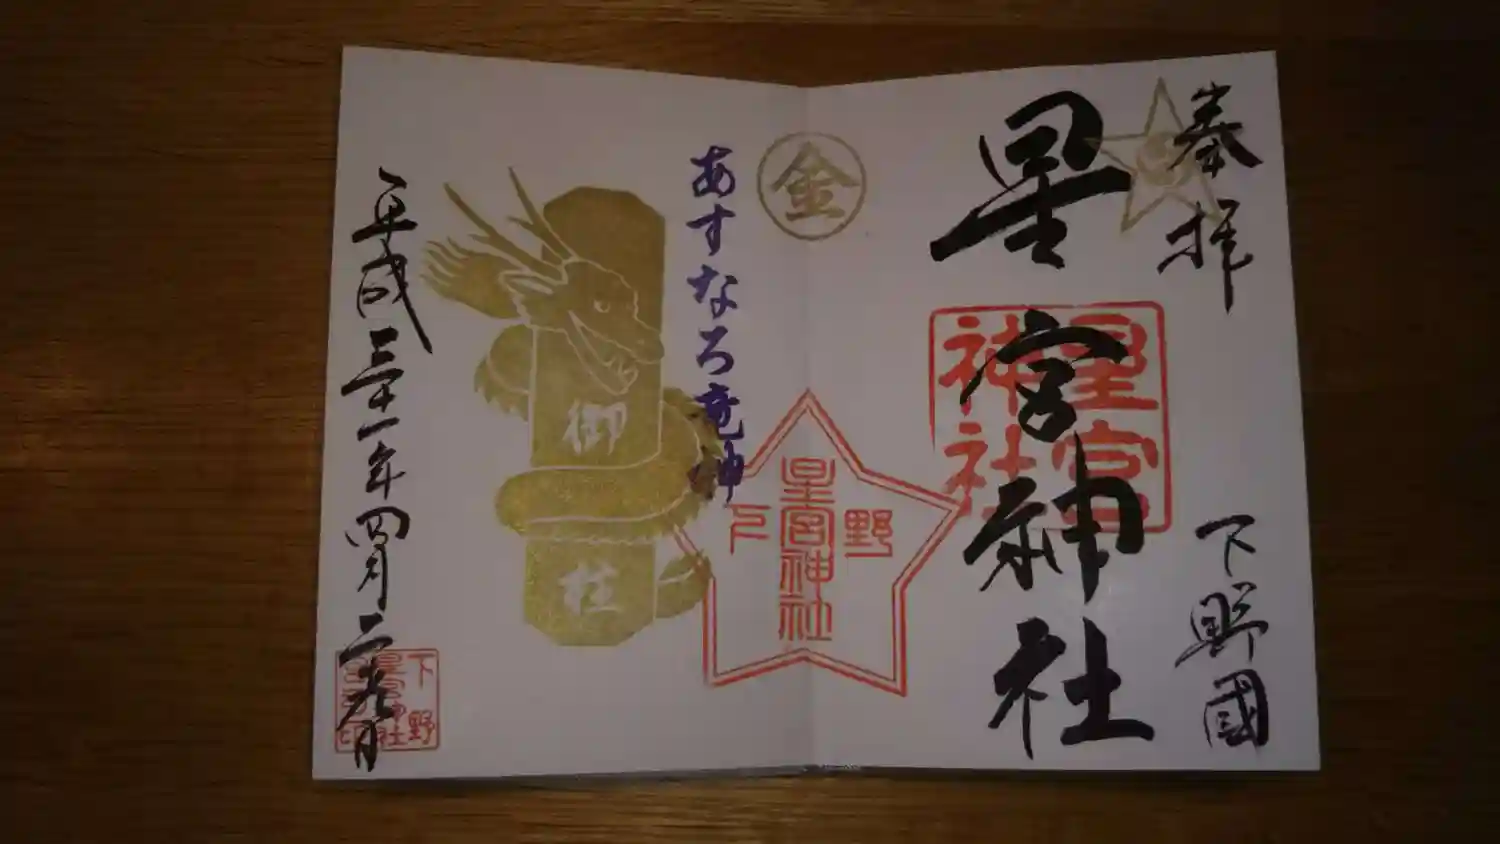 奉拝
下野國
星宮神社
星宮
神社
金
野
星宮神社
下
あすなろ竜神
御柱
平成三十一年四月二十九日
下野
星宮神社